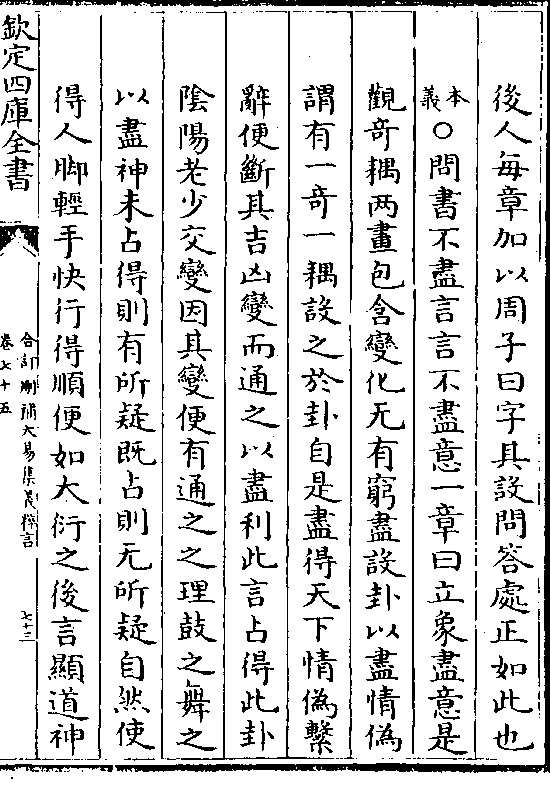 後人每章加以周子曰字其設問答處正如此也
本義○問書不盡言言不盡意一章曰立象盡意是
觀奇耦两畫包含變化无有窮盡設卦以盡情偽
謂有一奇一耦設之於卦自是盡得天下情偽繫
辭便斷其吉凶變而通之以盡利此言占得此卦
陰陽老少交變因其變便有通之之理鼓之舞之
以盡神未占得則有所疑既占則无所疑自然使
得人脚輕手快行得順便如大衍之後言顯道神
欽定四庫全書
合訂刪補大易集義粹言
卷七十五
七十三